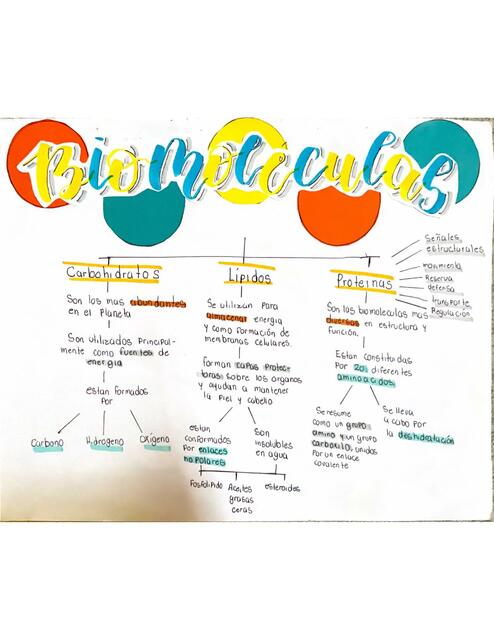 Biomoleculas
Señales,
estructurales
movimiento
Reserva
defensa
transporte
Regulación
Carbohidratos
Son los mas abundantes
en el Planeta
Son utilizados Principal-
mente como fuentes de
energia
estan formados
Por
Carbono
Hidrogeno
Oxigeno
Lípidos
Se utilizan para
almacenar energia
y como formación de
membranas celulares.
forman capas Protec-
toras sobre los organos
y ayudan a mantener
la Piel y cabello
estan
conformados
Por enlaces
no polares
Son
insolubles
en agua
Fosfolipido
Aceites
grasas
ceras
esteroides
Proteinas
Son las biomoleculas mas
diversas en estructura y
función.
Estan constituidas
Por 20 diferentes
aminoacidos
Se resume
como un grupo
amino y un grupo
carboxilo, unidos
Por un enlace
covalente
Se lleva
a cabo por
la deshidratación